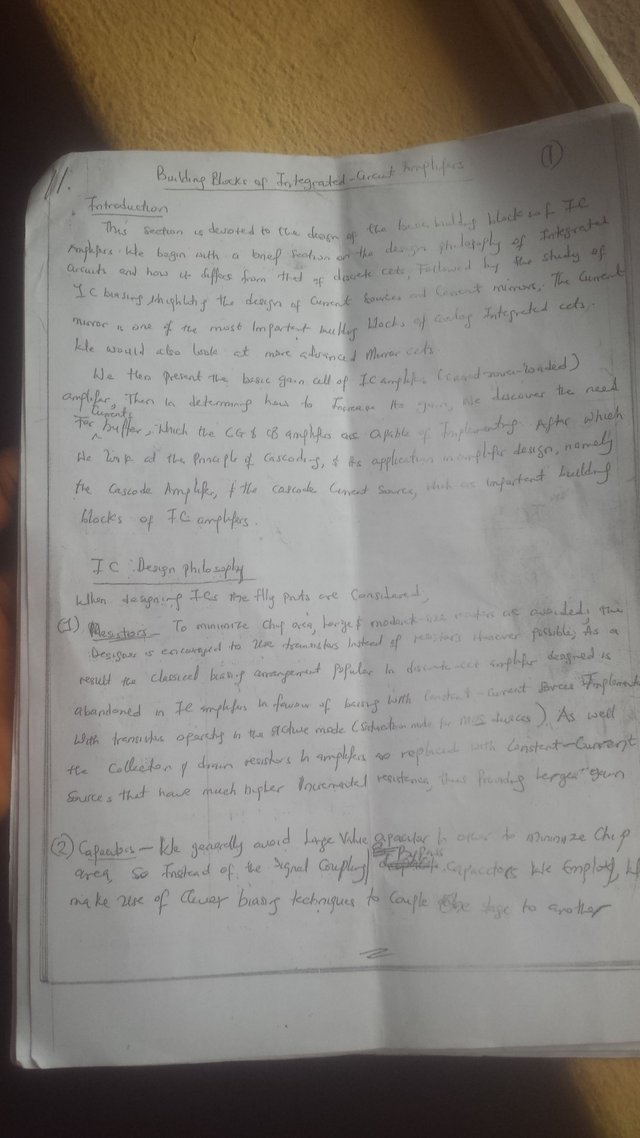 (1)
Building Blocks of Integrated-Circuit Amplifiers
Introduction
This section is devoted to the design of the basic building blocks of IC
Amplifiers. We begin with a brief section on the design philosophy of Integrated
Circuits and how it differs from that of discrete ccts, Followed by the study of
IC biasing highlighting the design of Current sources and Current mirrors. The Current
mirror is one of the most Important building blocks of analog Integrated ccts.
We would also look at more advanced Mirror ccts
We then present the basic gain cell of IC amplifiers (Current-source-loaded)
amplifier, Then In determining how to Increase Its gain, We discover the need
For Current buffer, Which the CG & CB amplifiers are Capable of Implementing After which
We look at the Principle of Cascoding, & Its application in amplifier design, namely
the Cascode Amplifier, & the cascode Current Source, which are Important building
blocks of IC amplifiers.
IC Design philosophy
When designing ICs the Fllg pnts are Considered,
(1) Resistors - To minimize Chip area, Large & moderate-size resistors are avoided; the
Designer is encouraged to Use transistors Instead of resistors whenever possible, As a
result the classical biasing arrangement popular In discrete-cct amplifier designed is
abandoned in IC amplifiers In favour of biasing with Constant-Current Sources Implemented
With transistors operating in the active mode (Saturation mode for MOS devices). As well
the Collector & drain resistors In amplifiers are replaced with Constant-Current
Sources that have much higher Incremental resistance, thus Providing Larger gain
(2) Capacitors - We generally avoid Large Value Capacitor In order to Minimize Chip
area, So Instead of the Signal Coupling & Bypass Capacitors We Employ, We
make Use of Clever biasing techniques to Couple One stage to another